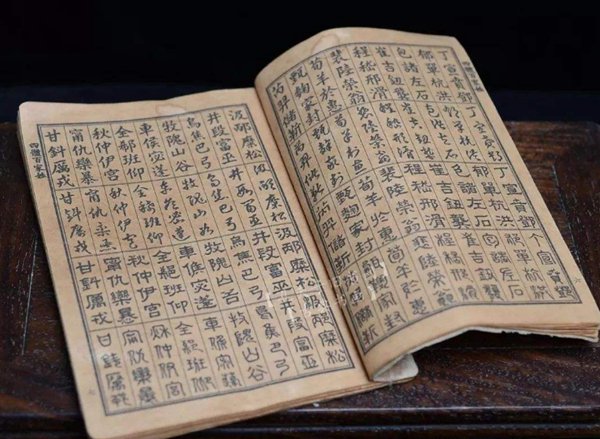 四體百家姓
丁宣賁鄧丁宣賁鄧丁宣賁鄧丁宣賁鄧
郁單杭洪郁單杭洪郁單杭洪郁單杭洪
包諸左石包諸左石包諸左石包諸左石
崔吉鈕龔崔吉鈕龔崔吉鈕龔崔吉鈕龔
程嵇邢滑程嵇邢滑程嵇邢滑程嵇邢滑
裴陸榮翁裴陸榮翁裴陸榮翁裴陸榮翁
荀羊於惠荀羊於惠荀羊於惠荀羊於惠
甄麴家封甄麴家封甄麴家封甄麴家封
芮羿儲靳芮羿儲靳芮羿儲靳芮羿儲靳
汲邴糜松汲邴糜松汲邴糜松汲邴糜松
井段富巫井段富巫井段富巫井段富巫
烏焦巴弓烏焦巴弓烏焦巴弓烏焦巴弓
牧隗山谷牧隗山谷牧隗山谷牧隗山谷
車侯宓蓬車侯宓蓬車侯宓蓬車侯宓蓬
全郗班仰全郗班仰全郗班仰全郗班仰
秋仲伊宮秋仲伊宮秋仲伊宮秋仲伊宮
甯仇欒暴甯仇欒暴甯仇欒暴甯仇欒暴
甘鈄厲戎甘鈄厲戎甘鈄厲戎甘鈄厲戎
四體百家姓